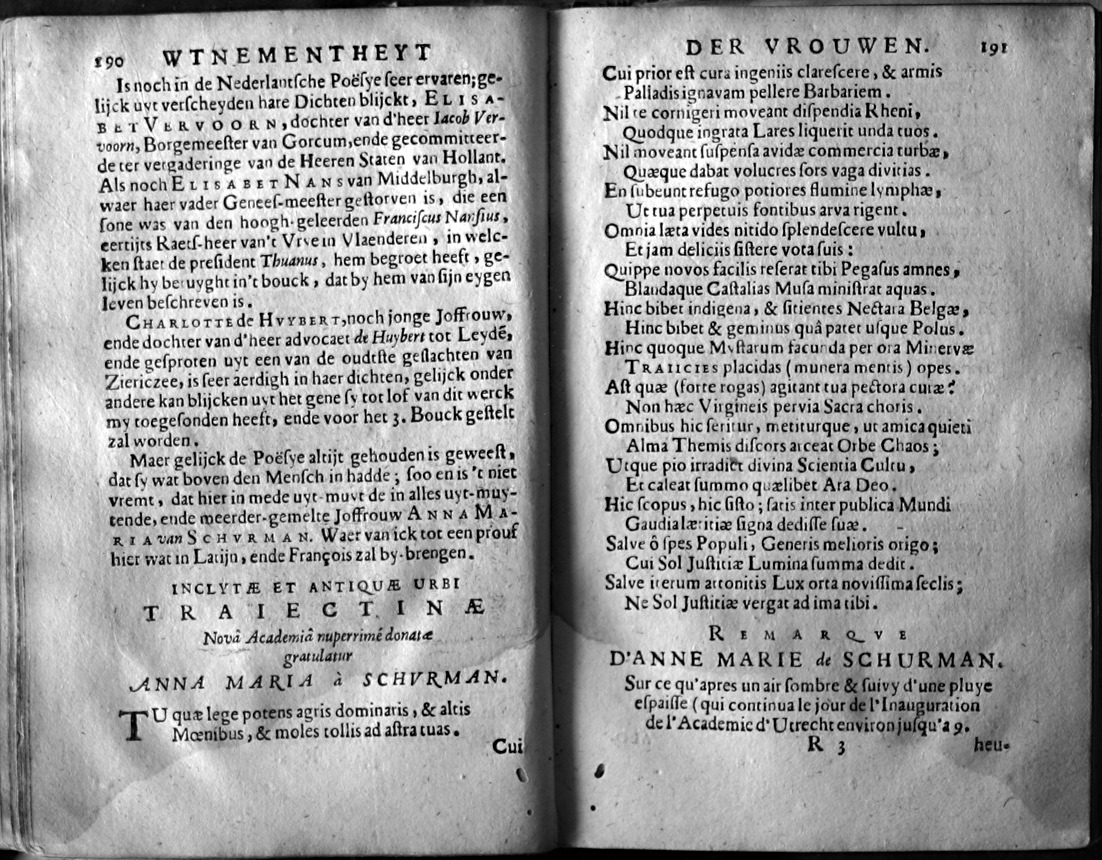 190 WTNEMENTHEYT
Is noch in de Nederlantſche Poëſye ſeer ervaren; ge-
lijck uyt verſcheyden hare Dichten blijckt, ELISA-
BET VERVOORN, dochter van d'heer Iacob Ver-
voorn, Borgemeeſter van Gorcum, ende gecommitteer-
de ter vergaderinge van de Heeren Staten van Hollant.
Als noch ELISABET NANS van Middelburgh, al-
waer haer vader Geneeſ-meeſter geſtorven is, die een
ſone was van den hoogh-geleerden Franciſcus Nanſius,
eertijts Raetſ-heer van't Vrye in Vlaenderen, in welc-
ken ſtaet de preſident Thuanus, hem begroet heeft, ge-
lijck hy betuyght in't bouck, dat by hem van ſijn eygen
leven beſchreven is.
CHARLOTTE de HVYBERT, noch jonge Joffrouw,
ende dochter van d'heer advocaet de Huybert tot Leydẽ,
ende geſproten uyt een van de oudtſte geſlachten van
Ziericzee, is ſeer aerdigh in haer dichten, gelijck onder
andere kan blijcken uyt het gene ſy tot lof van dit werck
my toegeſonden heeft, ende voor het 3. Bouck geſtelt
zal worden.
Maer gelijck de Poëſye altijt gehouden is geweeſt,
dat ſy wat boven den Menſch in hadde; ſoo en is 't niet
vremt, dat hier in mede uyt-muyt de in alles uyt-muy-
tende, ende meerder-gemelte Joffrouw ANNA MA-
RIA van SCHVRMAN. Waer van ick tot een prouf
hier wat in Latijn, ende François zal by-brengen.
INCLYTÆ ET ANTIQUÆ URBI
TRAIECTINÆ
Novâ Academiâ nuperrimé donatæ
gratulatur
ANNA MARIA à SCHVRMAN.
TU quæ lege potens agris dominaris, & altis
Mœnibus, & moles tollis ad aſtra tuas.
Cui
DER VROUWEN. 191
Cui prior eſt cura ingeniis clareſcere, & armis
Palladis ignavam pellere Barbariem.
Nil te cornigeri moveant diſpendia Rheni,
Quodque ingrata Lares liquerit unda tuos.
Nil moveant ſuſpenſa avidæ commercia turbæ,
Quæque dabat volucres ſors vaga divitias.
En ſubeunt refugo potiores flumine lymphæ,
Ut tua perpetuis fontibus arva rigent.
Omnia læta vides nitido ſplendeſcere vultu,
Et jam deliciis ſiſtere vota ſuis:
Quippe novos facilis reſerat tibi Pegaſus amnes,
Blandaque Caſtalias Muſa miniſtrat aquas.
Hinc bibet indigena, & ſitientes Nectara Belgæ,
Hinc bibet & geminus quâ patet uſque Polus.
Hinc quoque Myſtarum facunda per ora Minervæ
TRAIICIES placidas (munera mentis) opes.
Aſt quæ (forte rogas) agitant tua pectora curæ?
Non hæc Virgineis pervia Sacra choris.
Omnibus hic ſeritur, metiturque, ut amica quieti
Alma Themis diſcors arceat Orbe Chaos;
Utque pio irradiet divina Scientia Cultu,
Et caleat ſummo quælibet Ara Deo.
Hic ſcopus, hic ſiſto; ſatis inter publica Mundi
Gaudia lætitiæ ſigna dediſſe ſuæ.
Salve ô ſpes Populi, Generis melioris origo;
Cui Sol Juſtitiæ Lumina ſumma dedit.
Salve iterum attonitis Lux orta noviſſima ſeclis;
Ne Sol Juſtitiæ vergat ad ima tibi.
REMARQVE
D'ANNE MARIE de SCHURMAN.
Sur ce qu'apres un air ſombre & ſuivy d'une pluye
eſpaiſſe (qui continua le jour de l'Inauguration
de l'Academie d'Utrecht environ juſqu'a 9.
R 3 heu-